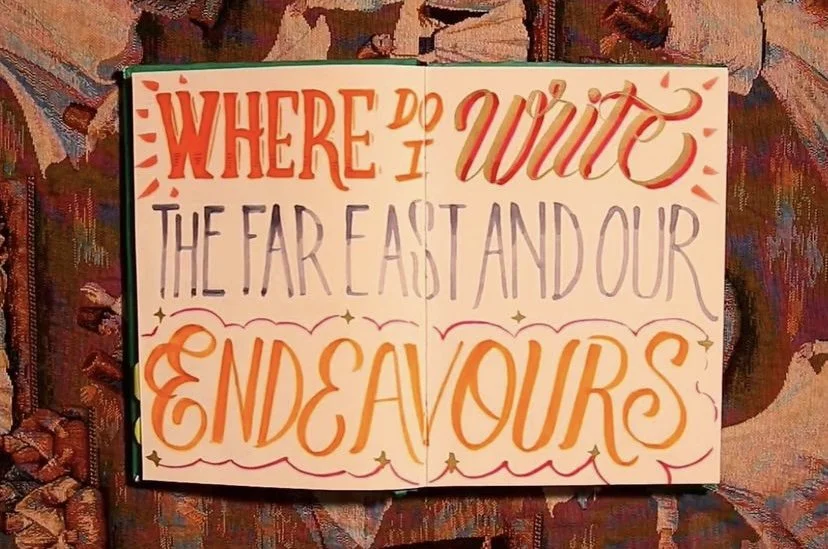 WHERE DO I Write
THE FAR EAST AND OUR
ENDEAVOURS